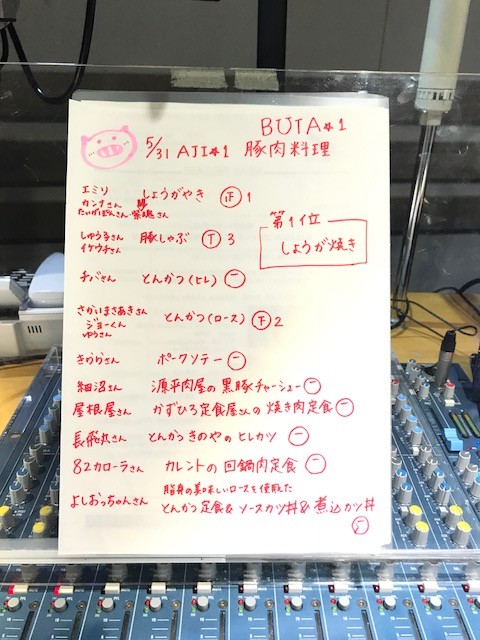 BUTA☆1
5/31 AJI☆1 豚肉料理
エミリ しょうがやき 正 1
カンナさん
たいかぽんさん 柴魂さん
第1位
しょうが焼き
しゅう子さん 豚しゃぶ T 3
イケウチさん
チバさん とんかつ(ヒレ) 一
さかいまさあきさん
ジョーくん とんかつ(ロース) 下 2
ゆうさん
きららさん ポークソテー 一
細沼さん 源平肉屋の黒豚チャーシュー 一
屋根屋さん かずひろ定食屋さんの焼き肉定食 一
長飛丸さん とんかつきのやのヒレカツ 一
82カローラさん カレントの回鍋肉定食 一
よしおっちゃんさん 脂身の美味しいロースを使用した
とんかつ定食&ソースカツ丼&煮込カツ丼